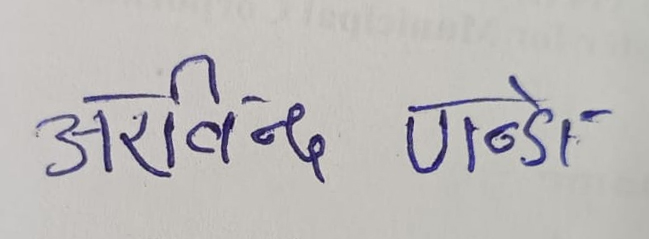 अरविन्द पान्डे